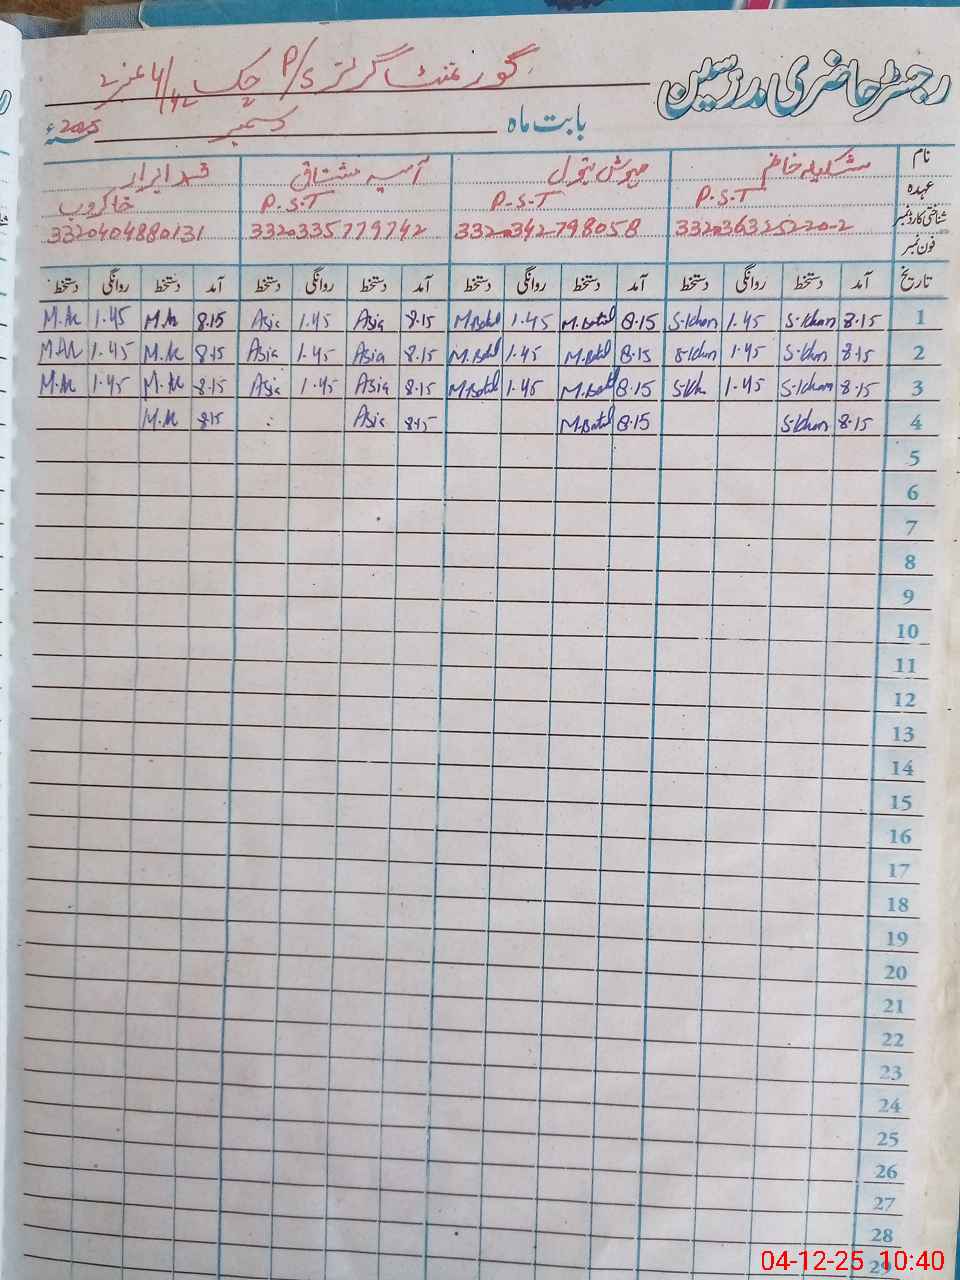 رجسٹر حاضری مدرسین
گورنمنٹ گرلز P/S چک
بابت ماہ دسمبر 2025ء
نام شکیلہ خانم مہوش بتول آسیہ مشتاق ابرار
عہدہ P.S.T P.S.T P.S.T خاکروب
شناختی کارڈ نمبر 332036325220-2 3320342798058 3320335779742 3320404880131
فون نمبر
تاریخ آمد دستخط روانگی دستخط آمد دستخط روانگی دستخط آمد دستخط روانگی دستخط آمد دستخط روانگی دستخط
1 8.15 S.Khan 1.45 S.Khan 8.15 M.Batul 1.45 M.Batul 8.15 Asia 1.45 Asia 8.15 M.Ar 1.45 M.Ar
2 8.15 S.Khan 1.45 S.Khan 8.15 M.Batul 1.45 M.Batul 8.15 Asia 1.45 Asia 8.15 M.Ar 1.45 M.Ar
3 8.15 S.Khan 1.45 S.Kh 8.15 M.Batul 1.45 M.Batul 8.15 Asia 1.45 Asia 8.15 M.Ar 1.45 M.Ar
4 8.15 S.Khan 8.15 M.Batul 8.15 Asia 8.15 M.Ar
5
6
7
8
9
10
11
12
13
14
15
16
17
18
19
20
21
22
23
24
25
26
27
28
29
04-12-25 10:40